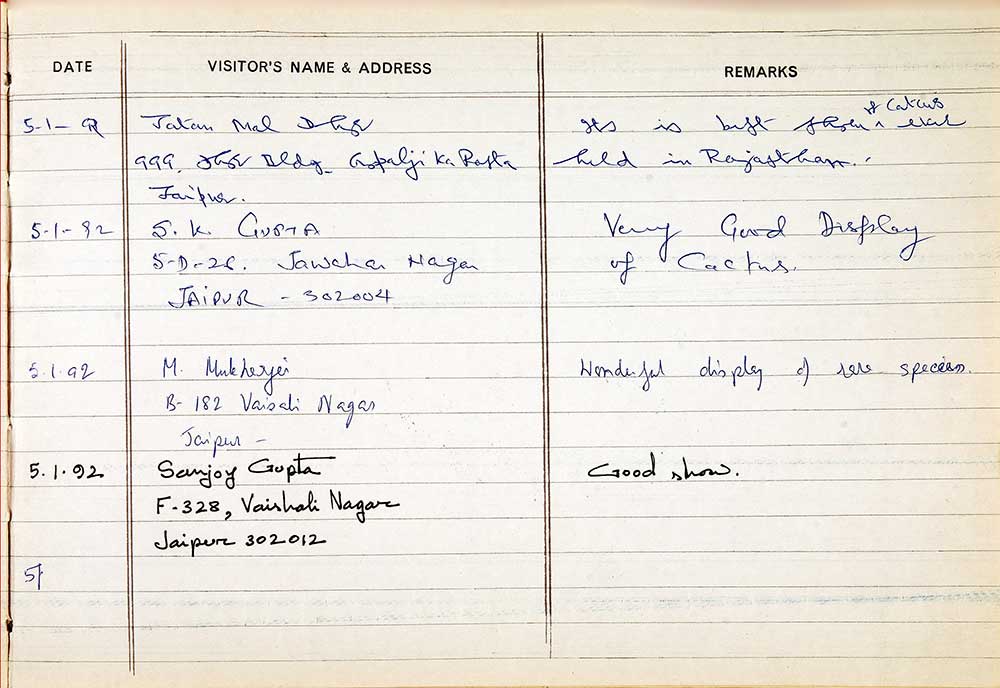 DATE VISITOR'S NAME & ADDRESS REMARKS
5-1-92 Jatan Mal of Catcus
Its is best held
999, Bldg. Gopalji Ka Rasta held in Rajasthan.
Jaipur.
5-1-92 S. K. GUPTA Very Good Display
5-D-26. Jawahar Nagar of Cactus.
JAIPUR - 302004
5.1.92 M. Mukherjei Wonderful display of rare species.
B-182 Vaisali Nagar
Jaipur -
5.1.92 Sanjoy Gupta Good show.
F-328, Vaishali Nagar
Jaipur 302012
5/